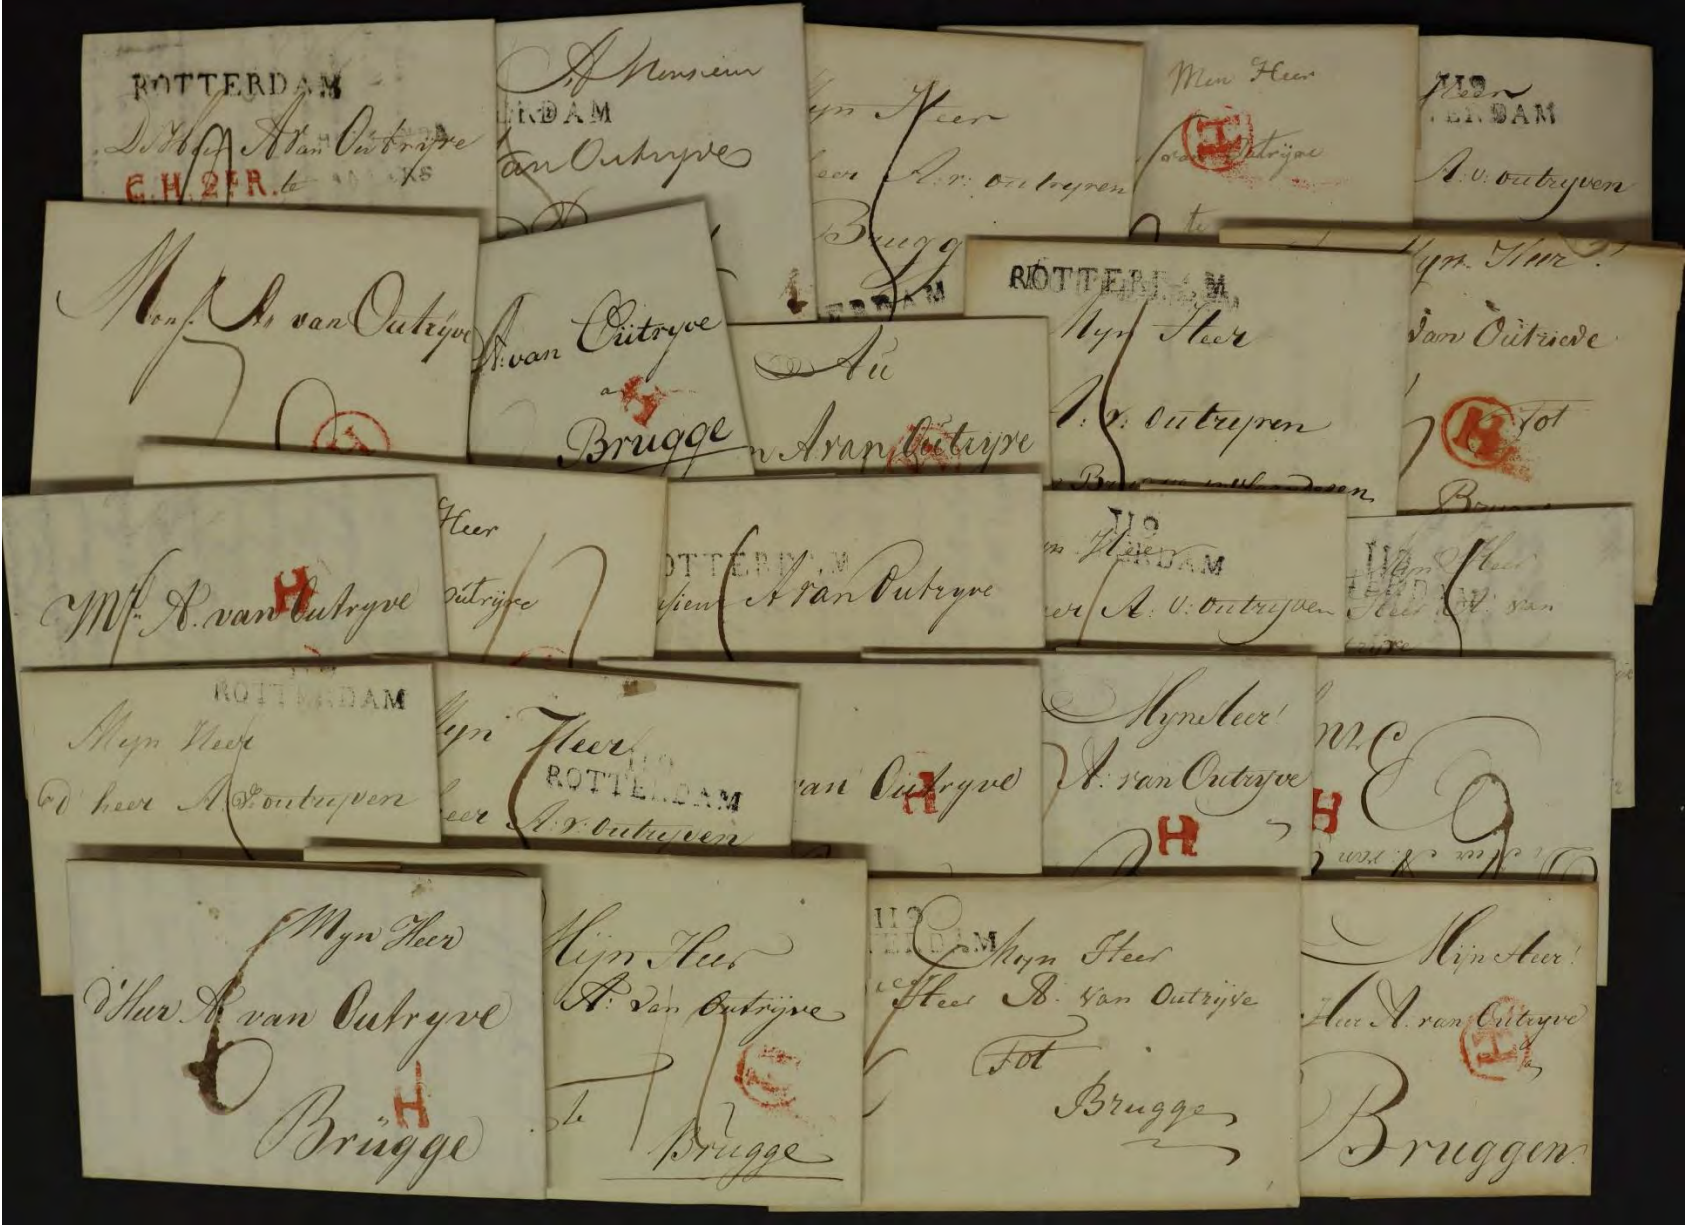 ROTTERDAM
A van Outryve
C.H.2FR. te
A Monsieur
RDAM
van Outryve
Heer
A: v: outryven
Brugg
ERDAM
Myn Heer
H
van Outryve
te
119
Heer
ERDAM
A: v: outryven
Mons. A. van Outryve
H
A: van Outryve
a
H
Brugge
Au
A van Outryve
ROTTERDAM
Myn Heer
A. v: outryven
Myn Heer!
van Outrieve
H
Tot
H
Mr. A. van Outryve
Heer
outryve
OTTERDAM
A van Outryve
119
Heer
RDAM
A: v: outryven
119
Myn Heer
Heer A: van
ROTTERDAM
Myn Heer
d' heer A v: outryven
Myn Heer
119
ROTTERDAM
eer A: v: outryven
van Outryve
H
Myn Heer!
A: van Outryve
H
H
Myn Heer
d'Heer A van Outryve
H
Brügge
Mijn Heer
A: van Outrijve
te
Brugge
119
ERDAM
Myn Heer
Heer A: van Outrijve
Tot
Brugge
Mijn Heer!
Heer A. van Outryve
H
Bruggen